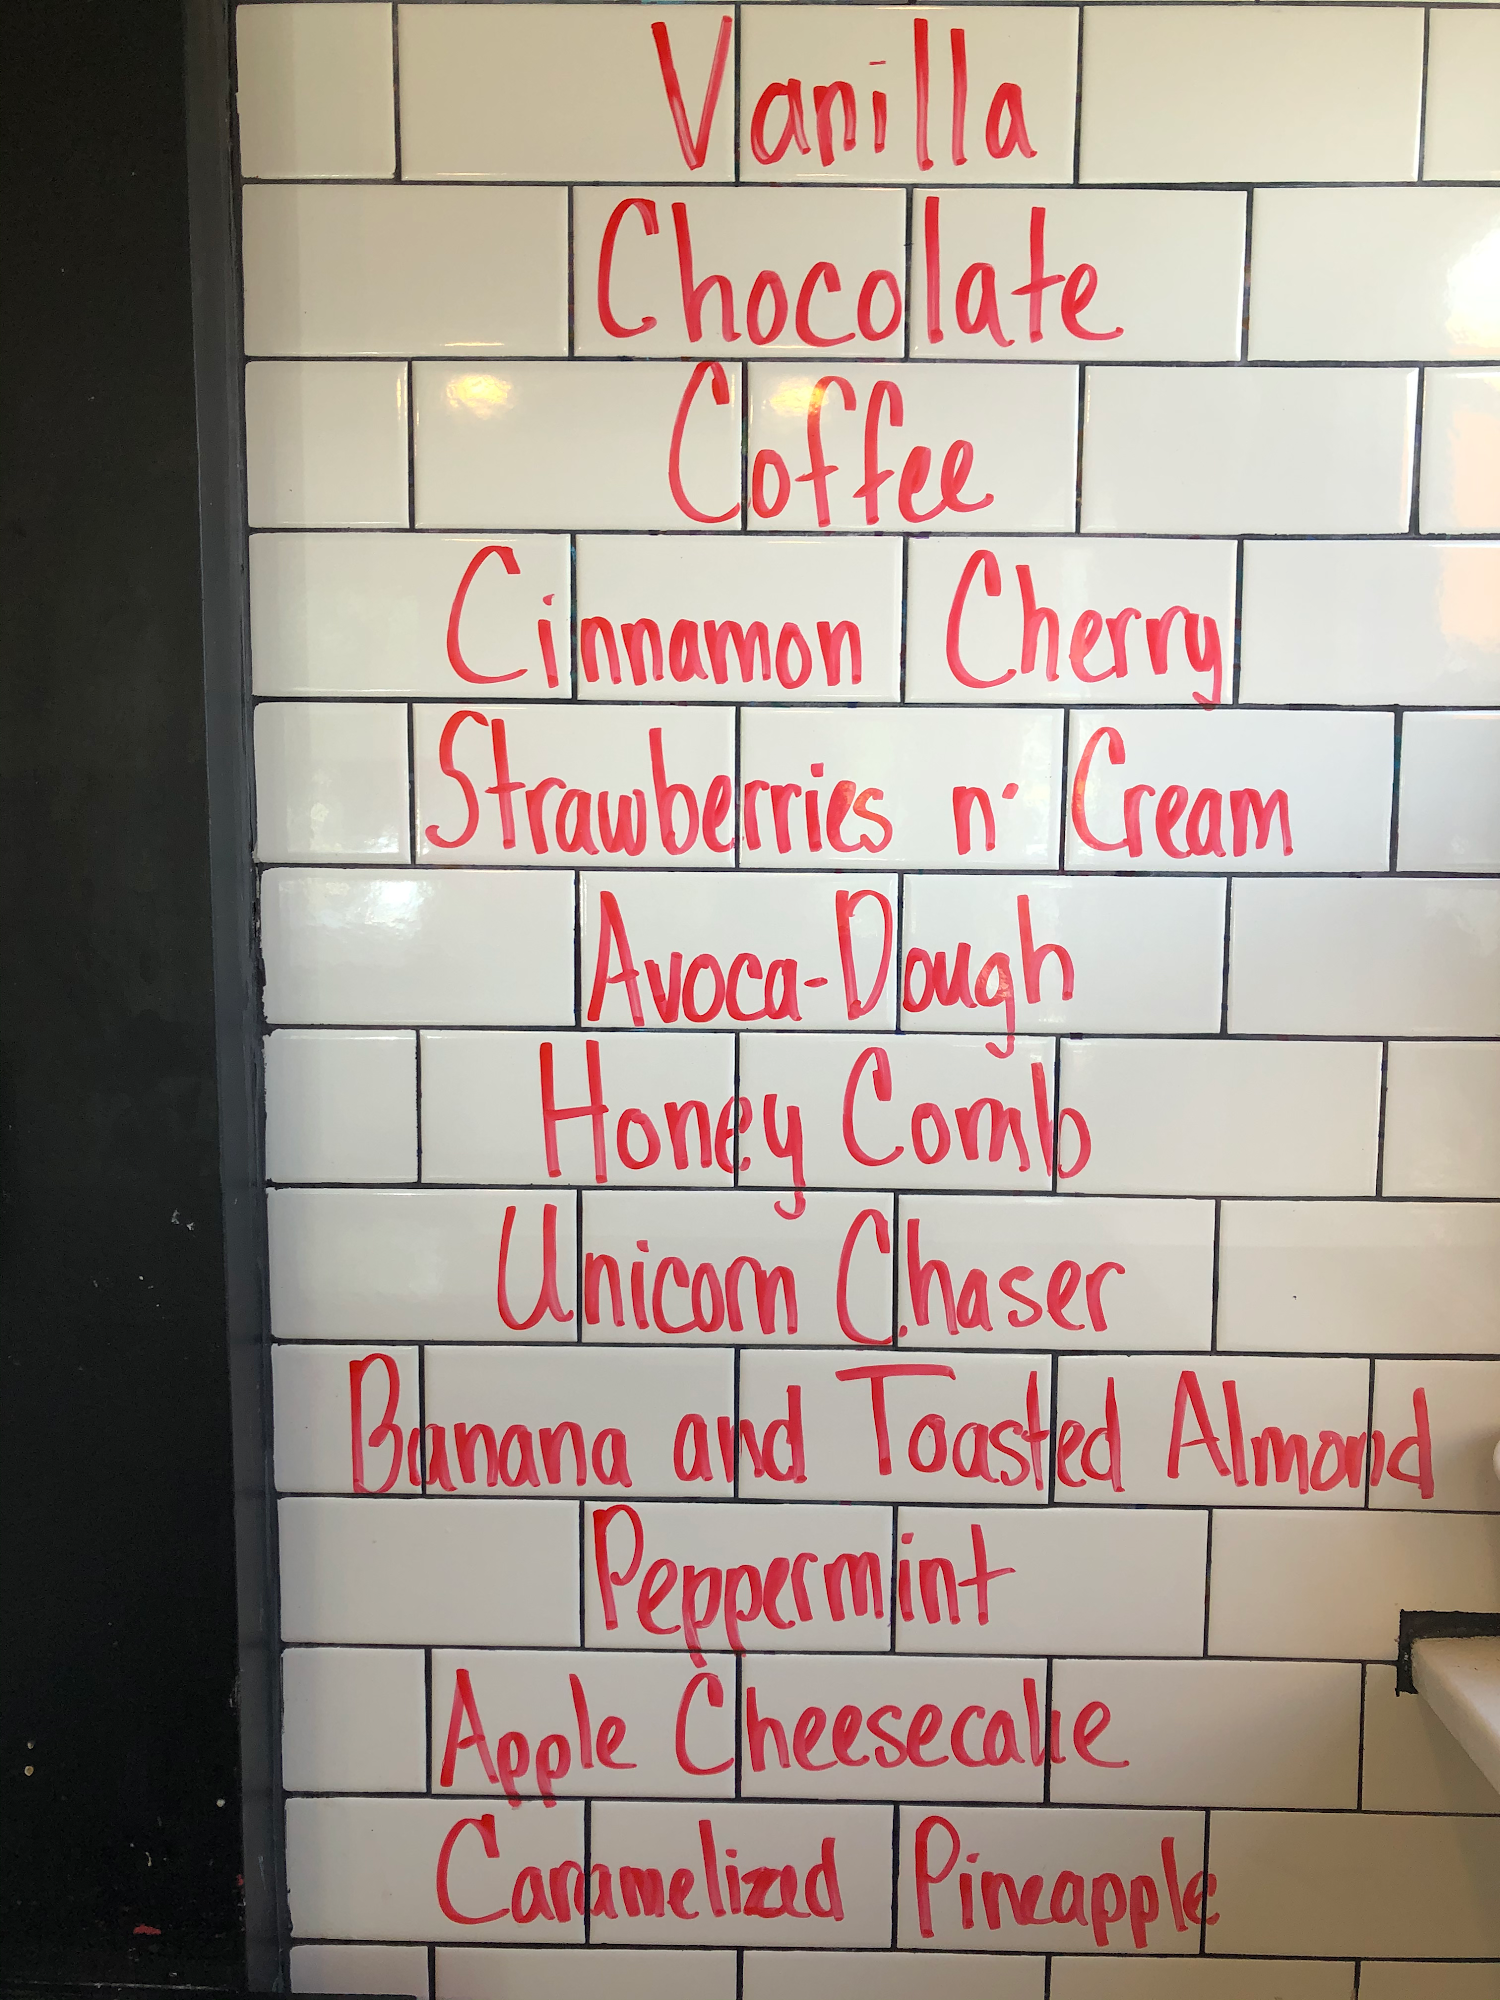 Vanilla
Chocolate
Coffee
Cinnamon Cherry
Strawberries n' Cream
Avoca-Dough
Honey Comb
Unicorn Chaser
Banana and Toasted Almond
Peppermint
Apple Cheesecake
Caramelized Pineapple